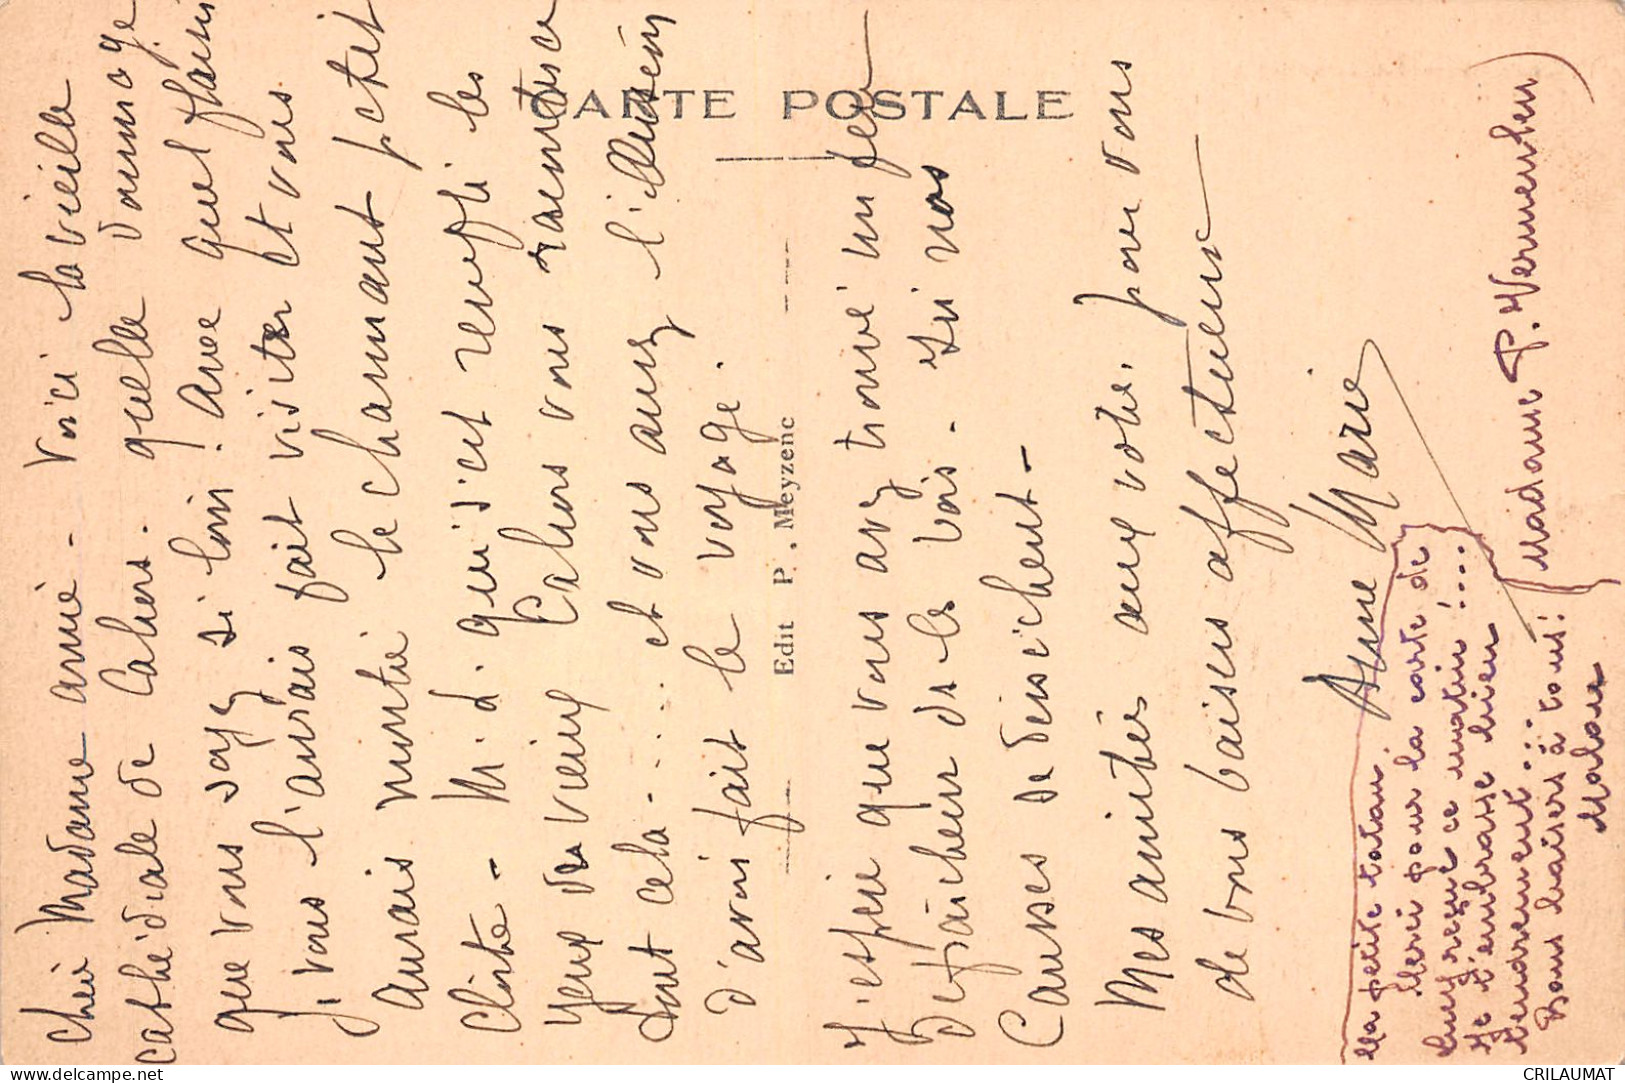 CARTE POSTALE
Edit P. Meyzenc
Chère Madame amie - Voici la vieille
cathédrale de Cahors. quelle dommage
que vous soyez si loin! Avec quel plaisir
je vous l'aurais fait visiter et vous
aurais montré le charmant petit
cloître - M. d. qui s'est rempli les
yeux de vieux Cahors vous racontera
tout cela.... et vous aurez l'illusion
d'avoir fait le voyage.
J'espère que vous avez trouvé un peu
de fraîcheur de le bois. Ici nos
Causses se dessèchent -
Mes amitiés aux vôtres, pour vous
de bons baisers affectueux
Anne Marie
Ma petite tatan
Merci pour la carte de
reçue ce matin!...
Je t'embrasse bien
tendrement...
Bons baisers à tous!
Madame P. Vermenhen)
CRILAUMAT